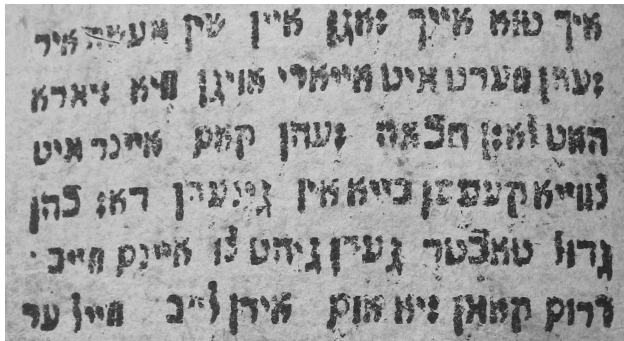 איך טוא אייך זאגן איין שין מעשה איר
זעהן ווערט איט אייארי אויגן וויא זיארא
האט לאזן מכאה זעהן קאם איינר איט
צווייא קעמפן בייא אין גינערין דאז כהן
גדול טאכטר גערין גיהט צו איינם ווייב
דרום קאאן זיא אום אירן לייב ווייל ער